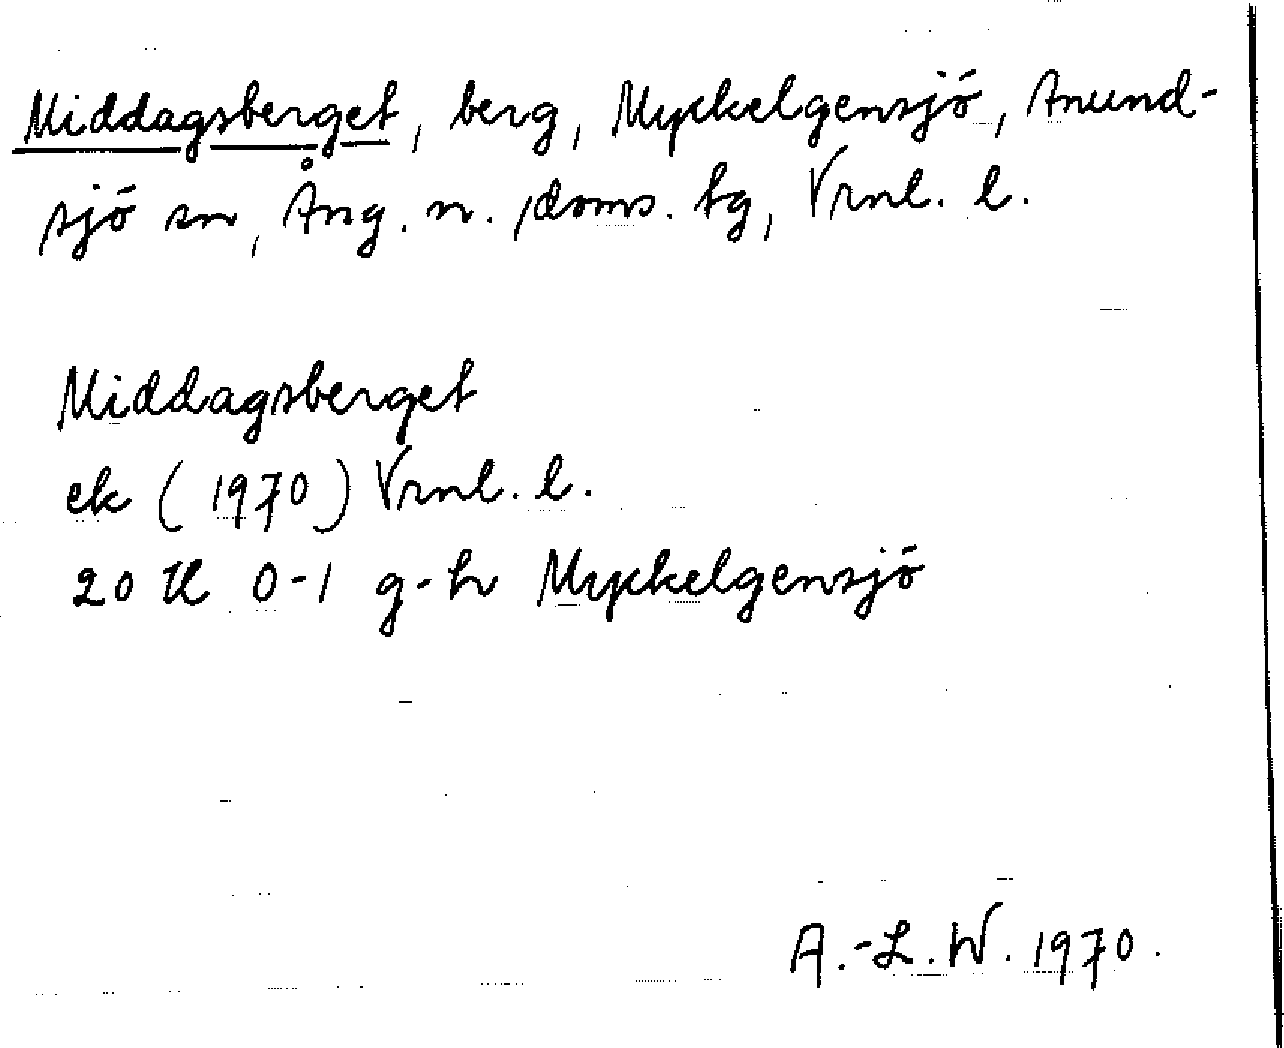 Middagsberget, berg, Myckelgensjö, Anund-
sjö sn, Ång. n. doms. tg, Vrnl. l.
Middagsberget
ek (1970) Vrnl. l.
20 H 0-1 g-h Myckelgensjö
A.-L.W. 1970.